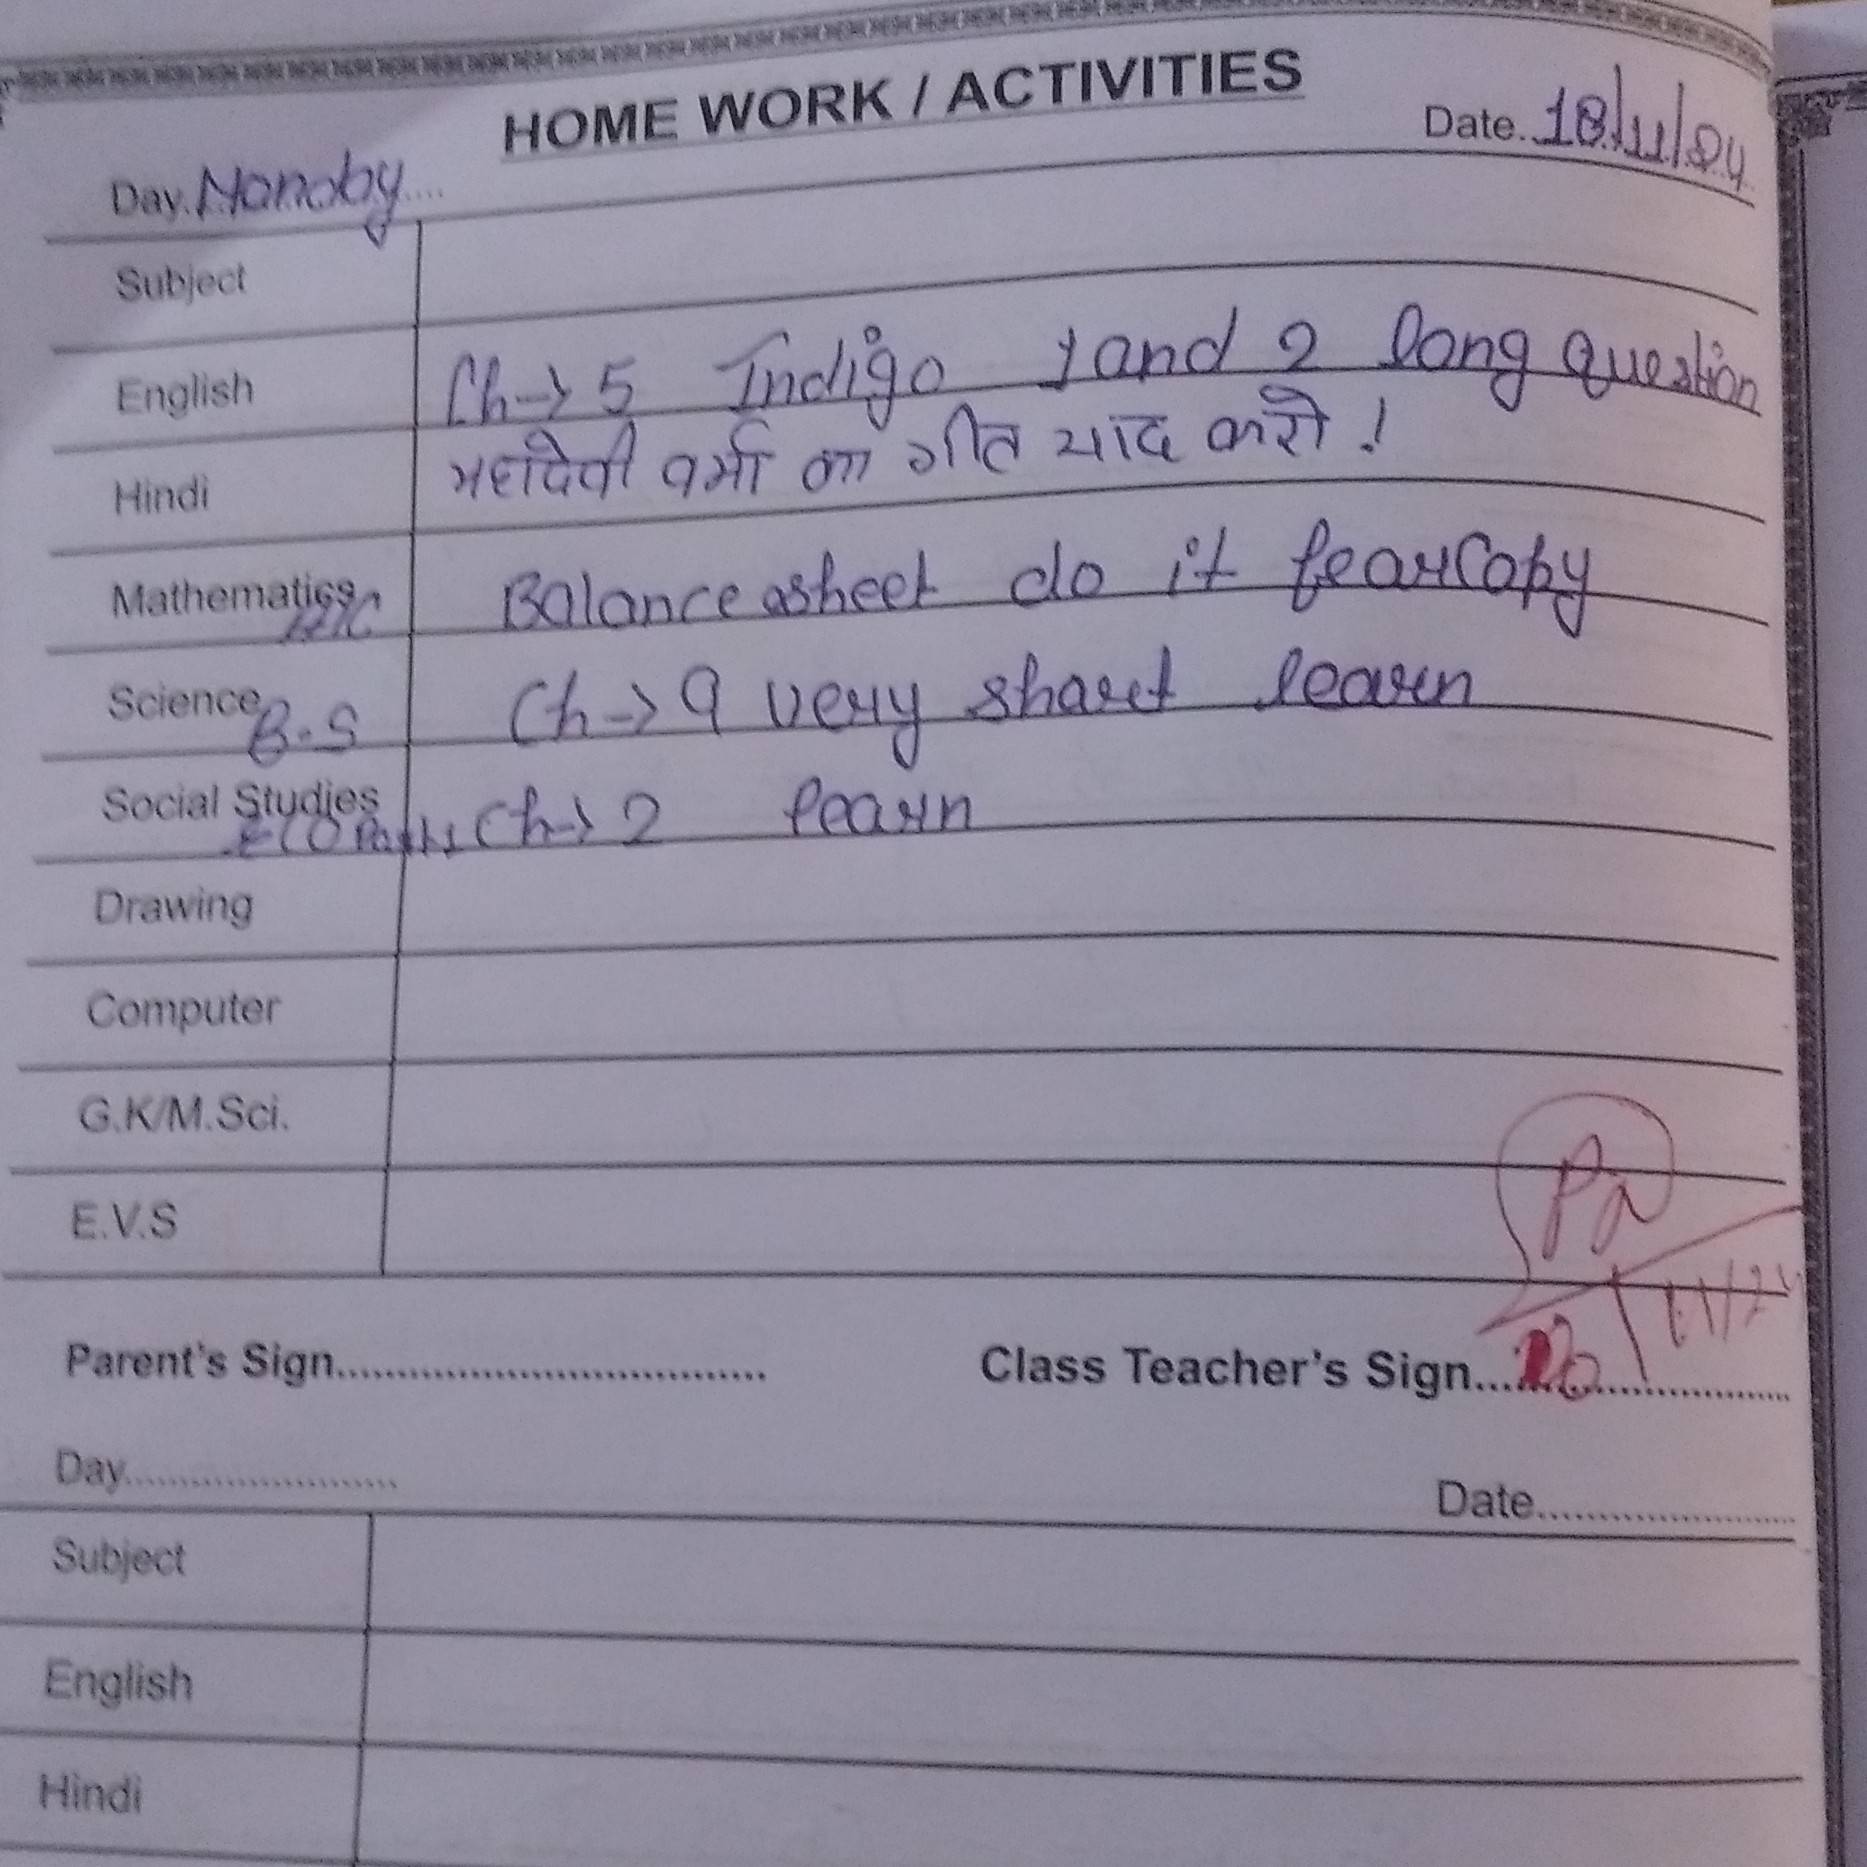 HOME WORK / ACTIVITIES
Day. Monday Date. 18/11/24
Subject
English Ch→5 Indigo 1 and 2 long question
Hindi महादेवी वर्मा का गीत याद करो !
Mathematics A/C Balance asheet do it fearcopy
Science B.S Ch→9 very short learn
Social Studies ECO Ch→2 learn
Drawing
Computer
G.K/M.Sci.
E.V.S
Parent's Sign.................................... Class Teacher's Sign...
Day........................ Date........................
Subject
English
Hindi